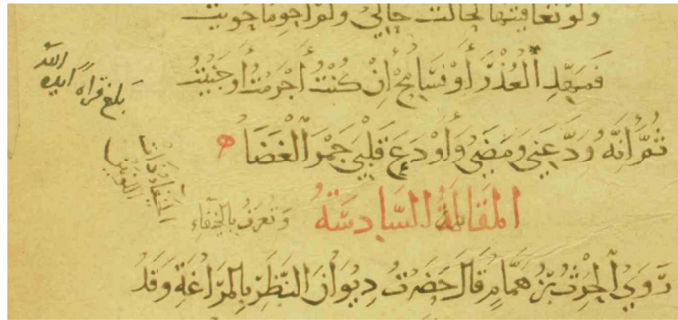 ولو تعافيتها لحالت حالي ولم أحو ما حويت
فَمَهِّدِ الْعُذْرَ أَوْ فَسَامِحْ إِنْ كُنْتُ أَجْرَمْتُ أَوْ جَنَيْتُ
ثُمَّ إِنَّهُ وَدَّعَنِي وَمَضَى وَأَوْدَعَ قَلْبِي جَمْرَ الْغَضَا
المقامة السَّادِسَةُ وَتُعْرَفُ بِالْخَيْفَاءِ
رَوَى الْحِرْثُ بْنُ هَمَّامٍ قَالَ حَضَرْتُ دِيوَانَ النَّظَرِ بِالْمَرَاغَةِ وَقَدْ
بلغ قراةً ايده الله
الخيفاء ذات